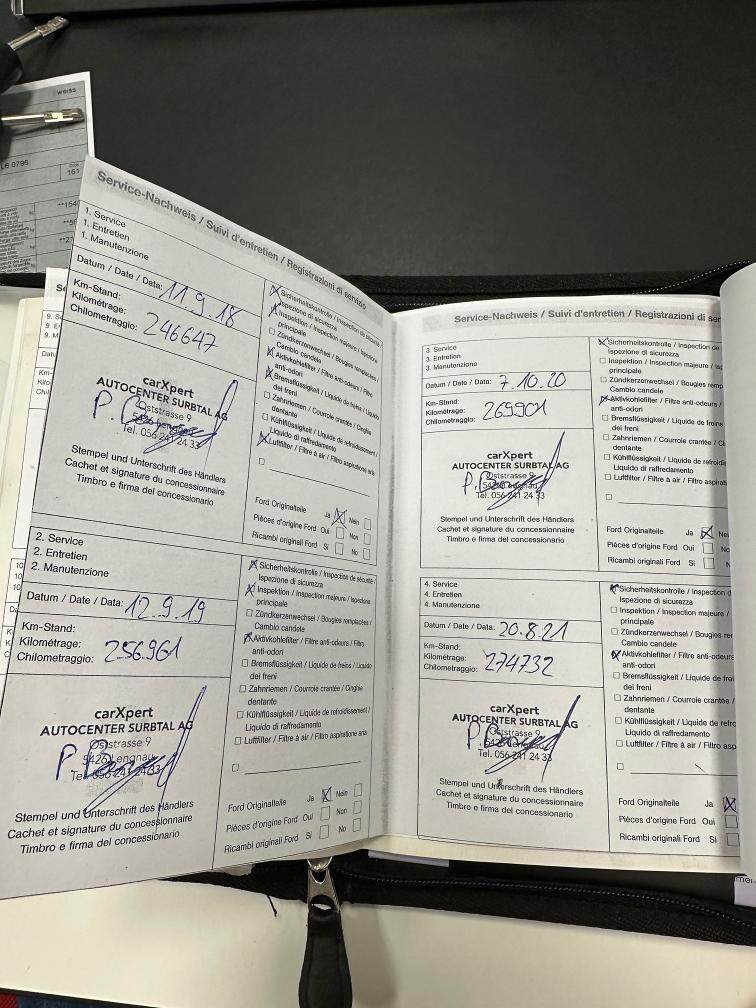 weiss
L6 0796
161
Service-Nachweis / Suivi d'entretien / Registrazioni di servizio
1. Service
1. Entretien
1. Manutenzione
Datum / Date / Data: 11.9.18
Km-Stand:
Kilométrage:
Chilometraggio: 246647
carXpert
AUTOCENTER SURBTAL AG
Oststrasse 9
5426 Lengnau
Tel. 056 241 24 33
Stempel und Unterschrift des Händlers
Cachet et signature du concessionnaire
Timbro e firma del concessionario
Sicherheitskontrolle / Inspection de sécurité /
Ispezione di sicurezza
Inspektion / Inspection majeure / Ispezione
principale
Zündkerzenwechsel / Bougies remplacées /
Cambio candele
Aktivkohlefilter / Filtre anti-odeurs / Filtro
anti-odori
Bremsflüssigkeit / Liquide de freins / Liquido
dei freni
Zahnriemen / Courroie crantée / Cinghie
dentante
Kühlflüssigkeit / Liquide de refroidissement /
Liquido di raffredamento
Luftfilter / Filtre à air / Filtro aspirazione aria
Ford Originalteile Ja Nein
Pièces d'origine Ford Oui Non
Ricambi originali Ford Si No
2. Service
2. Entretien
2. Manutenzione
Datum / Date / Data: 12.9.19
Km-Stand:
Kilométrage:
Chilometraggio: 256961
carXpert
AUTOCENTER SURBTAL AG
Oststrasse 9
5426 Lengnau
Tel. 056 241 24 33
Stempel und Unterschrift des Händlers
Cachet et signature du concessionnaire
Timbro e firma del concessionario
Sicherheitskontrolle / Inspection de sécurité /
Ispezione di sicurezza
Inspektion / Inspection majeure / Ispezione
principale
Zündkerzenwechsel / Bougies remplacées /
Cambio candele
Aktivkohlefilter / Filtre anti-odeurs / Filtro
anti-odori
Bremsflüssigkeit / Liquide de freins / Liquido
dei freni
Zahnriemen / Courroie crantée / Cinghie
dentante
Kühlflüssigkeit / Liquide de refroidissement /
Liquido di raffredamento
Luftfilter / Filtre à air / Filtro aspirazione aria
Ford Originalteile Ja Nein
Pièces d'origine Ford Oui Non
Ricambi originali Ford Si No
Service-Nachweis / Suivi d'entretien / Registrazioni di ser
3. Service
3. Entretien
3. Manutenzione
Datum / Date / Data: 7.10.20
Km-Stand:
Kilométrage:
Chilometraggio: 269901
carXpert
AUTOCENTER SURBTAL AG
Oststrasse 9
5426 Lengnau
Tel. 056 241 24 33
Stempel und Unterschrift des Händlers
Cachet et signature du concessionnaire
Timbro e firma del concessionario
Sicherheitskontrolle / Inspection de
Ispezione di sicurezza
Inspektion / Inspection majeure / Isp
principale
Zündkerzenwechsel / Bougies remp
Cambio candele
Aktivkohlefilter / Filtre anti-odeurs /
anti-odori
Bremsflüssigkeit / Liquide de freins
dei freni
Zahnriemen / Courroie crantée / Ci
dentante
Kühlflüssigkeit / Liquide de refroidis
Liquido di raffredamento
Luftfilter / Filtre à air / Filtro aspirati
Ford Originalteile Ja Nei
Pièces d'origine Ford Oui
Ricambi originali Ford Si
4. Service
4. Entretien
4. Manutenzione
Datum / Date / Data: 20.8.21
Km-Stand:
Kilométrage:
Chilometraggio: 274732
carXpert
AUTOCENTER SURBTAL AG
Oststrasse 9
5426 Lengnau
Tel. 056 241 24 33
Stempel und Unterschrift des Händlers
Cachet et signature du concessionnaire
Timbro e firma del concessionario
Sicherheitskontrolle / Inspection d
Ispezione di sicurezza
Inspektion / Inspection majeure /
principale
Zündkerzenwechsel / Bougies rer
Cambio candele
Aktivkohlefilter / Filtre anti-odeurs
anti-odori
Bremsflüssigkeit / Liquide de frei
dei freni
Zahnriemen / Courroie crantée /
dentante
Kühlflüssigkeit / Liquide de refro
Liquido di raffredamento
Luftfilter / Filtre à air / Filtro asp
Ford Originalteile Ja
Pièces d'origine Ford Oui
Ricambi originali Ford Si